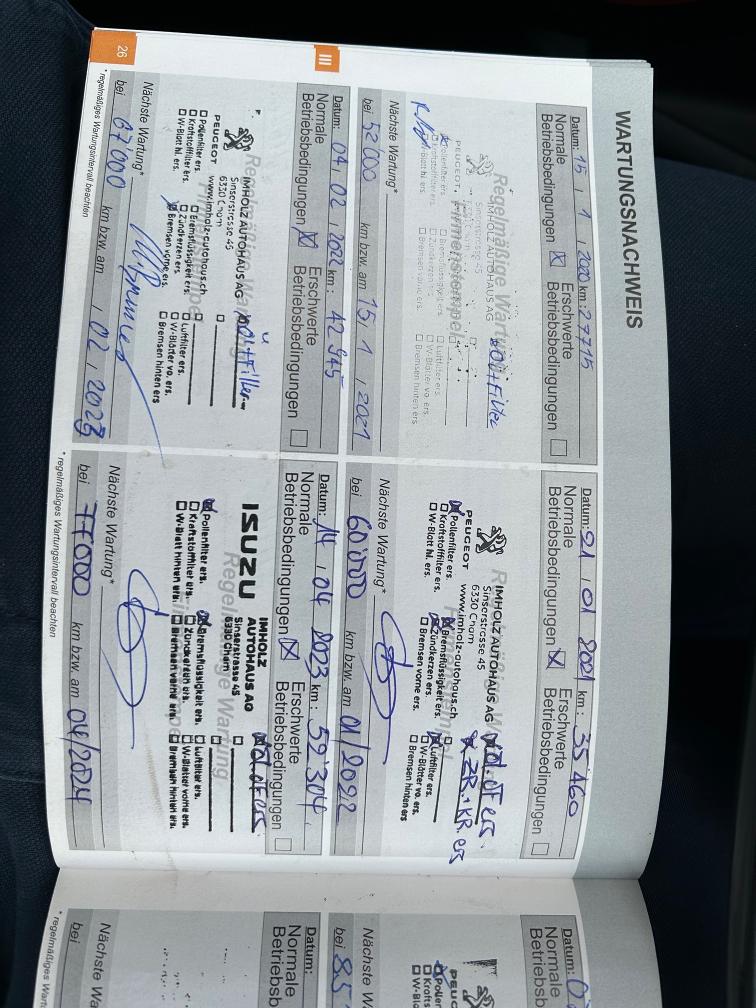 WARTUNGSNACHWEIS
Datum: 15 , 1 , 2020 km: 27715
Normale Betriebsbedingungen ☒ Erschwerte Betriebsbedingungen ☐
Regelmäßige Wartung
Firmenstempel
IMHOLZ AUTOHAUS AG
Sinserstrasse 45
PEUGEOT
Öl+Filter
Pollenfilter ers. ☐ Bremsflüssigkeit ers. ☐ Luftfilter ers.
☐ Kraftstofffilter ers. ☐ Zündkerzen ers. ☐ W-Blätter vo. ers.
☐ W-Blatt hl. ers. ☐ Bremsen vorne ers. ☐ Bremsen hinten ers
Nächste Wartung*
bei 52000 km bzw. am 15 , 1 , 2021
Datum: 04 , 02 , 2022 km: 42 945
Normale Betriebsbedingungen ☒ Erschwerte Betriebsbedingungen ☐
Regelmäßige Wartung
IMHOLZ AUTOHAUS AG
Sinserstrasse 45
6330 Cham
www.imholz-autohaus.ch
PEUGEOT
Öl+Filter
☐ Pollenfilter ers. ☐ Bremsflüssigkeit ers. ☐ Luftfilter ers.
☐ Kraftstofffilter ers. ☐ Zündkerzen ers. ☐ W-Blätter vo. ers.
☐ W-Blatt hl. ers. ☒ Bremsen vorne ers. ☐ Bremsen hinten ers
Nächste Wartung*
bei 67000 km bzw. am , 02 , 2023
* regelmäßiges Wartungsintervall beachten
26
III
Datum: 21 , 01 2021 km: 35 460
Normale Betriebsbedingungen ☒ Erschwerte Betriebsbedingungen ☐
IMHOLZ AUTOHAUS AG
Sinserstrasse 45
6330 Cham
www.imholz-autohaus.ch
PEUGEOT
☒ Öl. OF ers.
☒ ZR. + KR. ers
☒ Pollenfilter ers. ☒ Bremsflüssigkeit ers. ☒ Luftfilter ers.
☐ Kraftstofffilter ers. ☒ Zündkerzen ers. ☐ W-Blätter vo. ers.
☐ W-Blatt hl. ers. ☐ Bremsen vorne ers. ☐ Bremsen hinten ers
Nächste Wartung*
bei 60'000 km bzw. am 01/2022
Datum: 14 , 04 2023 km: 52'304
Normale Betriebsbedingungen ☒ Erschwerte Betriebsbedingungen ☐
Regelmäßige Wartung
ISUZU
IMHOLZ
AUTOHAUS AG
Sinserstrasse 45
6330 Cham
☒ Öl. OF ers.
☒ Pollenfilter ers. ☒ Bremsflüssigkeit ers. ☐ Luftfilter ers.
☐ Kraftstofffilter ers. ☐ Zündkerzen ers. ☐ W-Blätter vorne ers.
☐ W-Blatt hinten ers. ☐ Bremsen vorne ers. ☐ Bremsen hinten ers.
Nächste Wartung*
bei 77000 km bzw. am 04/2024
* regelmäßiges Wartungsintervall beachten
Datum: 0
Normale
Betriebsb
PEUG
Pollen
☐ Krafts
☐ W-Bla
Nächste W
bei 85
Datum:
Normale
Betriebsb
Nächste Wa
bei
* regelmäßige